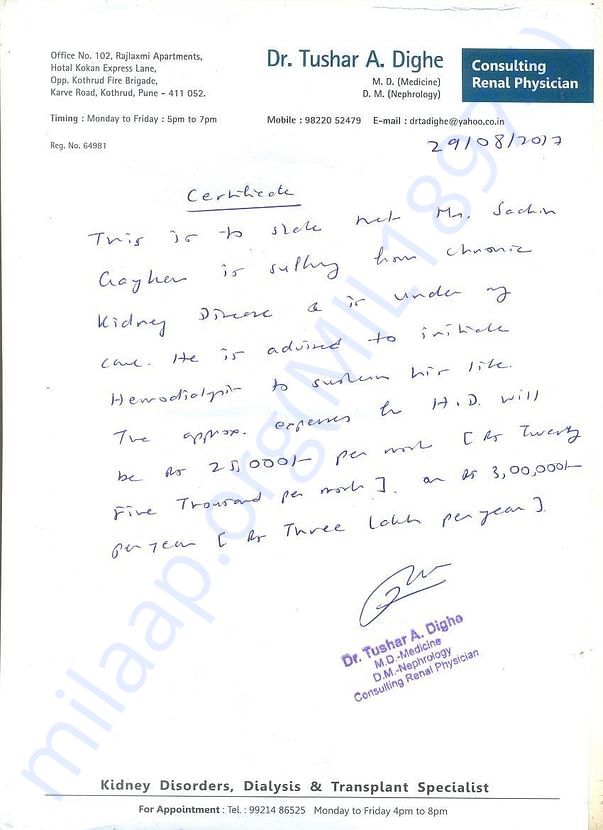 Office No. 102, Rajlaxmi Apartments,
Hotal Kokan Express Lane,
Opp. Kothrud Fire Brigade,
Karve Road, Kothrud, Pune - 411 052.
Timing : Monday to Friday : 5pm to 7pm
Reg. No. 64981
Dr. Tushar A. Dighe
M. D. (Medicine)
D. M. (Nephrology)
Mobile : 98220 52479 E-mail : drtadighe@yahoo.co.in
Consulting
Renal Physician
29/08/2017
Certificate
This is to state that Mr. Sachin
is suffering from chronic
Kidney Disease & is under my
care. He is advised to initiate
Hemodialysis to sustain his life.
The approx. expenses for H.D. will
be Rs 25,000/- per month [ Rs Twenty
Five Thousand per month ]. or Rs 3,00,000/-
per year [ Rs Three Lakh per year ].
Dr. Tushar A. Dighe
M.D.-Medicine
D.M.-Nephrology
Consulting Renal Physician
Kidney Disorders, Dialysis & Transplant Specialist
For Appointment : Tel. : 99214 86525 Monday to Friday 4pm to 8pm